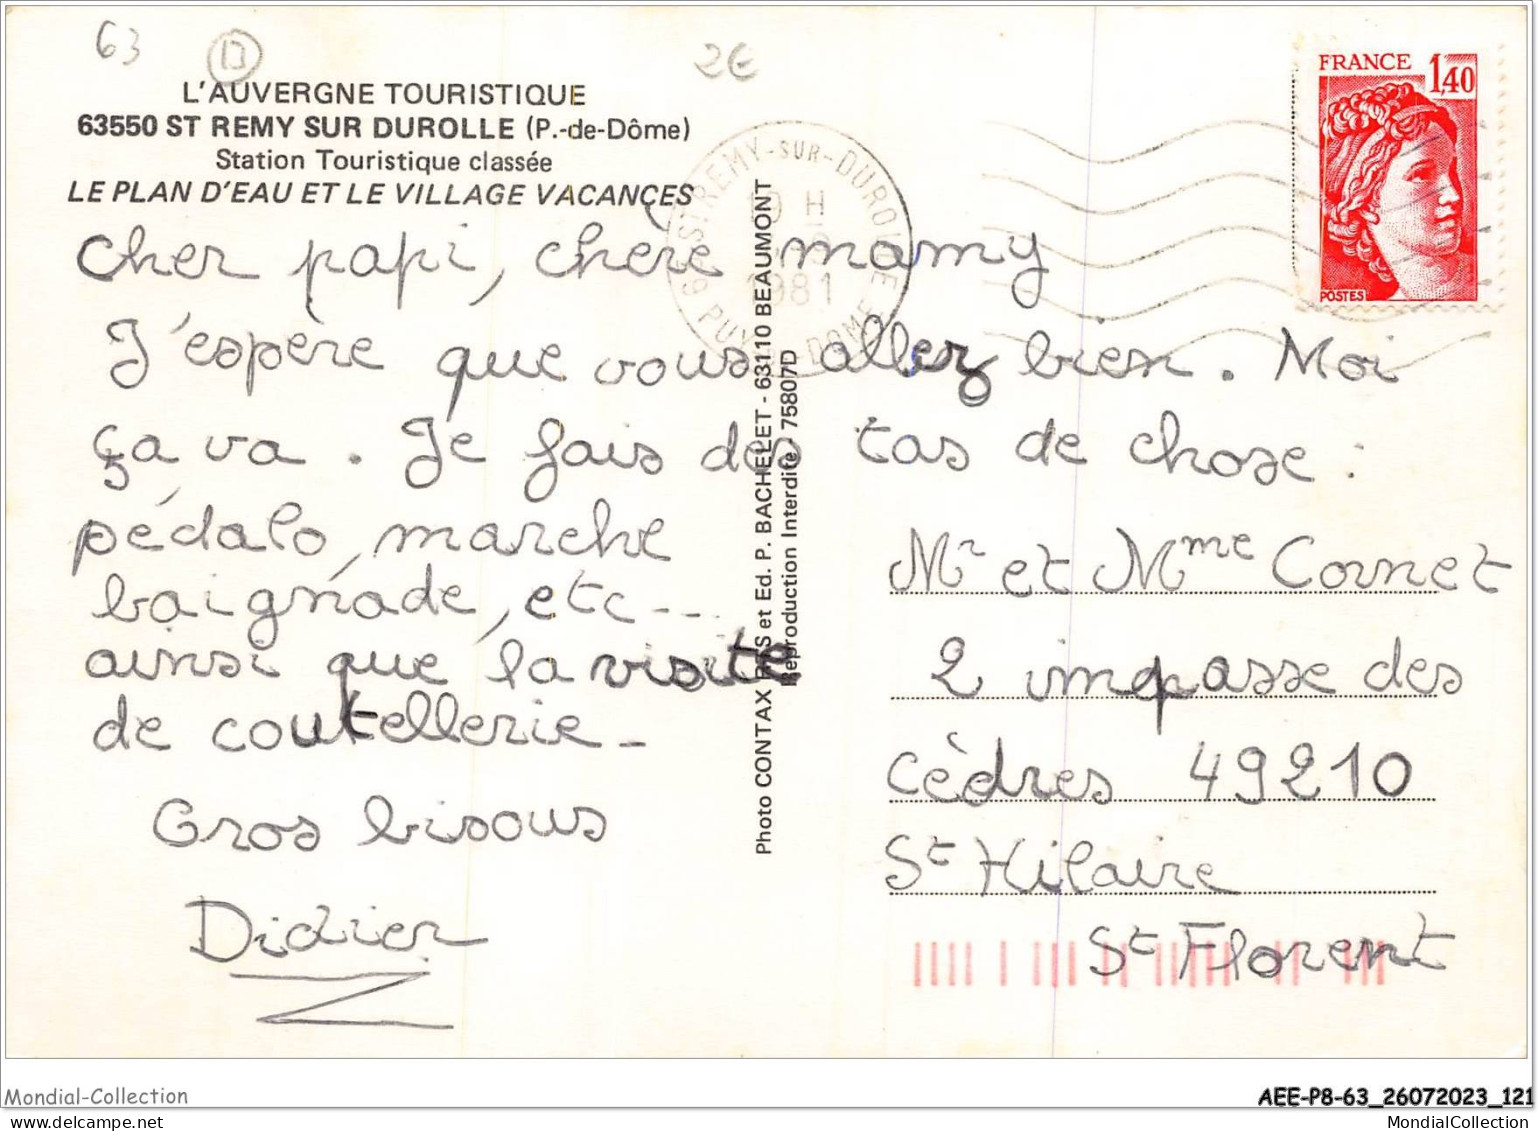 63
13
2€
L'AUVERGNE TOURISTIQUE
63550 ST REMY SUR DUROLLE (P.-de-Dôme)
Station Touristique classée
LE PLAN D'EAU ET LE VILLAGE VACANCES
FRANCE 1,40
POSTES
ST REMY-SUR-DUROLLE
H
1981
PUY-DE-DOME
Cher papi, chère mamy
J'espère que vous allez bien. Moi
ça va. Je fais des tas de chose :
pédalo, marche
baignade, etc...
ainsi que la visite
de coutellerie.
Gros bisous
Didier
Photo CONTAX et Ed. P. BACHELET - 63110 BEAUMONT
Reproduction Interdite 75807D
Mr et Mme Cornet
2 impasse des
cèdres 49210
St Hilaire
St Florent
Mondial-Collection
AEE-P8-63_26072023_121
MondialCollection